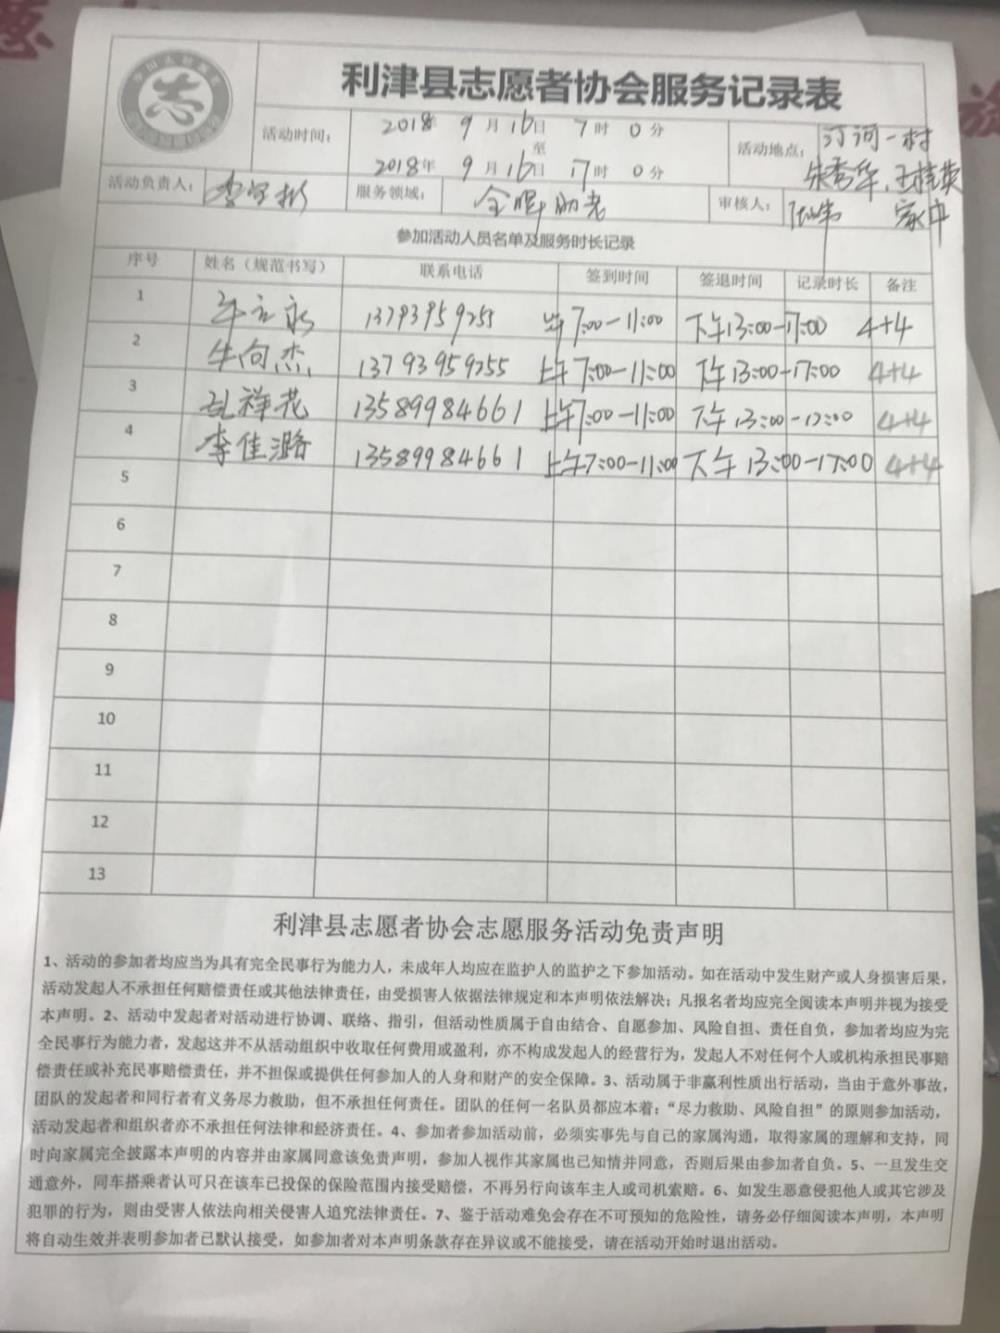 利津县志愿者协会服务记录表
活动时间： 2018年 9月16日 7时 0分
至
2018年 9月16日 17时 0分
活动地点： 汀河一村
朱秀华、王桂英
家中
活动负责人： 服务领域： 助老 审核人：
参加活动人员名单及服务时长记录
序号 姓名（规范书写） 联系电话 签到时间 签退时间 记录时长 备注
1 牛立永 13793959255 7:00-11:00 下午13:00-17:00 4+4
2 牛向杰 13793959255 上午7:00-11:00 下午13:00-17:00 4+4
3 祥花 13589984661 上午7:00-11:00 下午13:00-17:00 4+4
4 李佳潞 13589984661 上午7:00-11:00 下午13:00-17:00 4+4
5
6
7
8
9
10
11
12
13
利津县志愿者协会志愿服务活动免责声明
1、活动的参加者均应当为具有完全民事行为能力人，未成年人均应在监护人的监护之下参加活动。如在活动中发生财产或人身损害后果，
活动发起人不承担任何赔偿责任或其他法律责任，由受损害人依据法律规定和本声明依法解决；凡报名者均应完全阅读本声明并视为接受
本声明。2、活动中发起者对活动进行协调、联络、指引，但活动性质属于自由结合、自愿参加、风险自担、责任自负，参加者均应为完
全民事行为能力者，发起这并不从活动组织中收取任何费用或盈利，亦不构成发起人的经营行为，发起人不对任何个人或机构承担民事赔
偿责任或补充民事赔偿责任，并不担保或提供任何参加人的人身和财产的安全保障。3、活动属于非赢利性质出行活动，当由于意外事故，
团队的发起者和同行者有义务尽力救助，但不承担任何责任。团队的任何一名队员都应本着：“尽力救助、风险自担”的原则参加活动，
活动发起者和组织者亦不承担任何法律和经济责任。4、参加者参加活动前，必须实事先与自己的家属沟通，取得家属的理解和支持，同
时向家属完全披露本声明的内容并由家属同意该免责声明，参加人视作其家属也已知情并同意，否则后果由参加者自负。5、一旦发生交
通意外，同车搭乘者认可只在该车已投保的保险范围内接受赔偿，不再另行向该车主人或司机索赔。6、如发生恶意侵犯他人或其它涉及
犯罪的行为，则由受害人依法向相关侵害人追究法律责任。7、鉴于活动难免会存在不可预知的危险性，请务必仔细阅读本声明，本声明
将自动生效并表明参加者已默认接受，如参加者对本声明条款存在异议或不能接受，请在活动开始时退出活动。